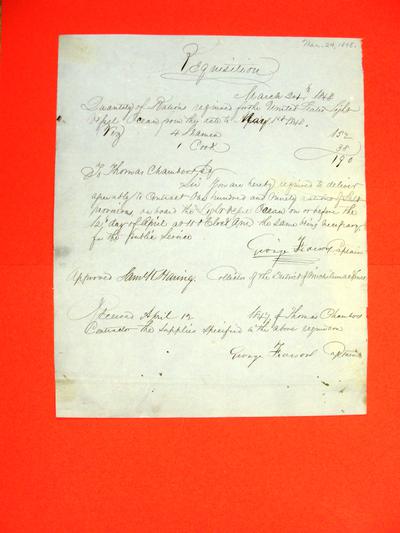 Mar. 24, 1848.
Requisition
March 24th 1848
Quantity of Rations required for the United States Light
Vessel Ocean from this date to May 1st 1848.
Viz 4 Seamen 152
1 Cook 38
190
To Thomas Chambers Esq
Sir You are hereby required to deliver
agreeably to Contract One hundred and ninety rations of Ship
provisions on board the Light Vessel Ocean on or before the
12th day of April at 10 O Clock AM the same being necessary
for the public service
George Captain
Approved Collector of the District of Michilimackinac
Received April 12 of Thomas Chambers
Contractor the supplies specified in the above requisition
George Captain